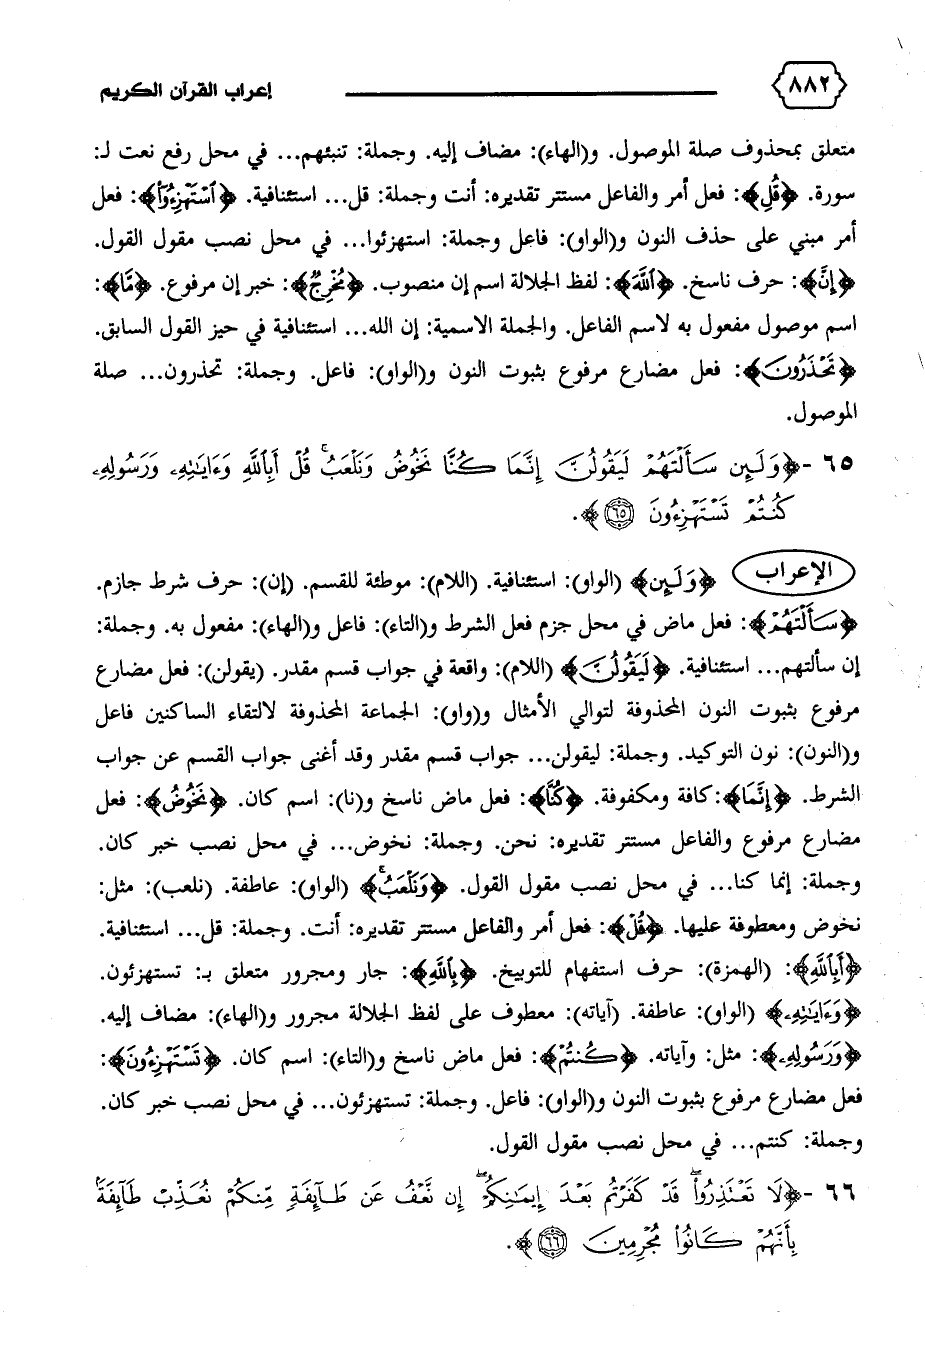 ٨٨٢ إعراب القرآن الكريم
متعلق بمحذوف صلة الموصول. و(الهاء): مضاف إليه. وجملة: تنبئهم... في محل رفع نعت لـ:
سورة. ﴿قُلِ﴾: فعل أمر والفاعل مستتر تقديره: أنت وجملة: قل... استئنافية. ﴿ٱسْتَهْزِءُوٓا۟﴾: فعل
أمر مبني على حذف النون و(الواو): فاعل وجملة: استهزئوا... في محل نصب مقول القول.
﴿إِنَّ﴾: حرف ناسخ. ﴿ٱللَّهَ﴾: لفظ الجلالة اسم إن منصوب. ﴿مُخْرِجٌ﴾: خبر إن مرفوع. ﴿مَّا﴾:
اسم موصول مفعول به لاسم الفاعل. والجملة الاسمية: إن الله... استئنافية في حيز القول السابق.
﴿تَحْذَرُونَ﴾: فعل مضارع مرفوع بثبوت النون و(الواو): فاعل. وجملة: تحذرون... صلة
الموصول.
٦٥ -﴿وَلَئِن سَأَلْتَهُمْ لَيَقُولُنَّ إِنَّمَا كُنَّا نَخُوضُ وَنَلْعَبُ ۚ قُلْ أَبِٱللَّهِ وَءَايَٰتِهِۦ وَرَسُولِهِۦ
كُنتُمْ تَسْتَهْزِءُونَ ٦٥﴾.
الإعراب ﴿وَلَئِن﴾ (الواو): استئنافية. (اللام): موطئة للقسم. (إن): حرف شرط جازم.
﴿سَأَلْتَهُمْ﴾: فعل ماض في محل جزم فعل الشرط و(التاء): فاعل و(الهاء): مفعول به. وجملة:
إن سألتهم... استئنافية. ﴿لَيَقُولُنَّ﴾ (اللام): واقعة في جواب قسم مقدر. (يقولن): فعل مضارع
مرفوع بثبوت النون المحذوفة لتوالي الأمثال و(واو): الجماعة المحذوفة لالتقاء الساكنين فاعل
و(النون): نون التوكيد. وجملة: ليقولن... جواب قسم مقدر وقد أغنى جواب القسم عن جواب
الشرط. ﴿إِنَّمَا﴾: كافة ومكفوفة. ﴿كُنَّا﴾: فعل ماض ناسخ و(نا): اسم كان. ﴿نَخُوضُ﴾: فعل
مضارع مرفوع والفاعل مستتر تقديره: نحن. وجملة: نخوض... في محل نصب خبر كان.
وجملة: إنما كنا... في محل نصب مقول القول. ﴿وَنَلْعَبُ ۚ﴾ (الواو): عاطفة. (نلعب): مثل:
نخوض ومعطوفة عليها. ﴿قُلْ﴾: فعل أمر والفاعل مستتر تقديره: أنت. وجملة: قل... استئنافية.
﴿أَبِٱللَّهِ﴾: (الهمزة): حرف استفهام للتوبيخ. ﴿بِٱللَّهِ﴾: جار ومجرور متعلق بـ: تستهزئون.
﴿وَءَايَٰتِهِۦ﴾ (الواو): عاطفة. (آياته): معطوف على لفظ الجلالة مجرور و(الهاء): مضاف إليه.
﴿وَرَسُولِهِۦ﴾: مثل: وآياته. ﴿كُنتُمْ﴾: فعل ماض ناسخ و(التاء): اسم كان. ﴿تَسْتَهْزِءُونَ﴾:
فعل مضارع مرفوع بثبوت النون و(الواو): فاعل. وجملة: تستهزئون... في محل نصب خبر كان.
وجملة: كنتم... في محل نصب مقول القول.
٦٦ -﴿لَا تَعْتَذِرُوا۟ ۖ قَدْ كَفَرْتُم بَعْدَ إِيمَٰنِكُمْ ۖ إِن نَّعْفُ عَن طَآئِفَةٍ مِّنكُمْ نُعَذِّبْ طَآئِفَةًۢ
بِأَنَّهُمْ كَانُوا۟ مُجْرِمِينَ ٦٦﴾.